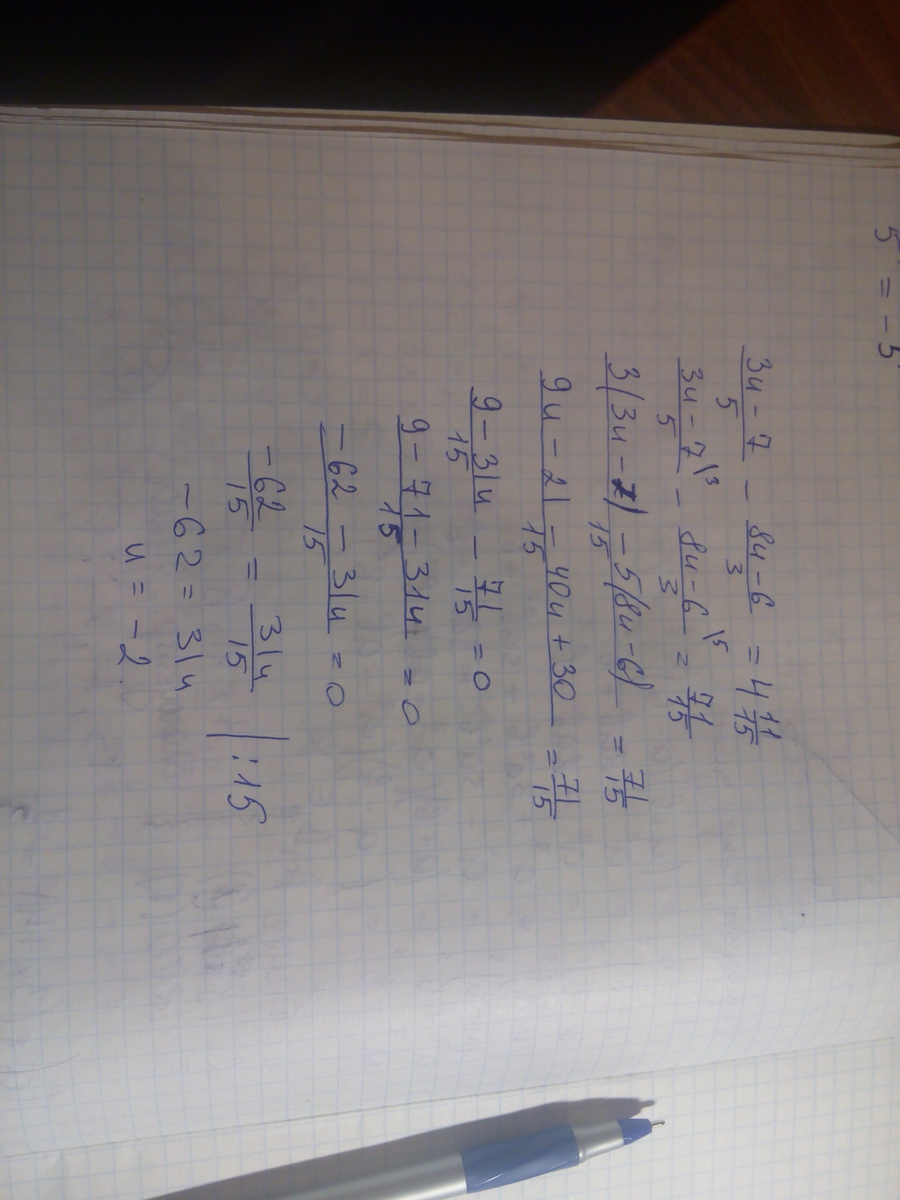 5 = -5
(3u-7)/5 - (8u-6)/3 = 4 11/15
(3u-7)/5 \3 - (8u-6)/3 \5 = 71/15
(3(3u-7) - 5(8u-6))/15 = 71/15
(9u - 21 - 40u + 30)/15 = 71/15
(9 - 31u)/15 - 71/15 = 0
(9 - 71 - 31u)/15 = 0
(-62 - 31u)/15 = 0
-62/15 = 31u/15 | :15
-62 = 31u
u = -2.